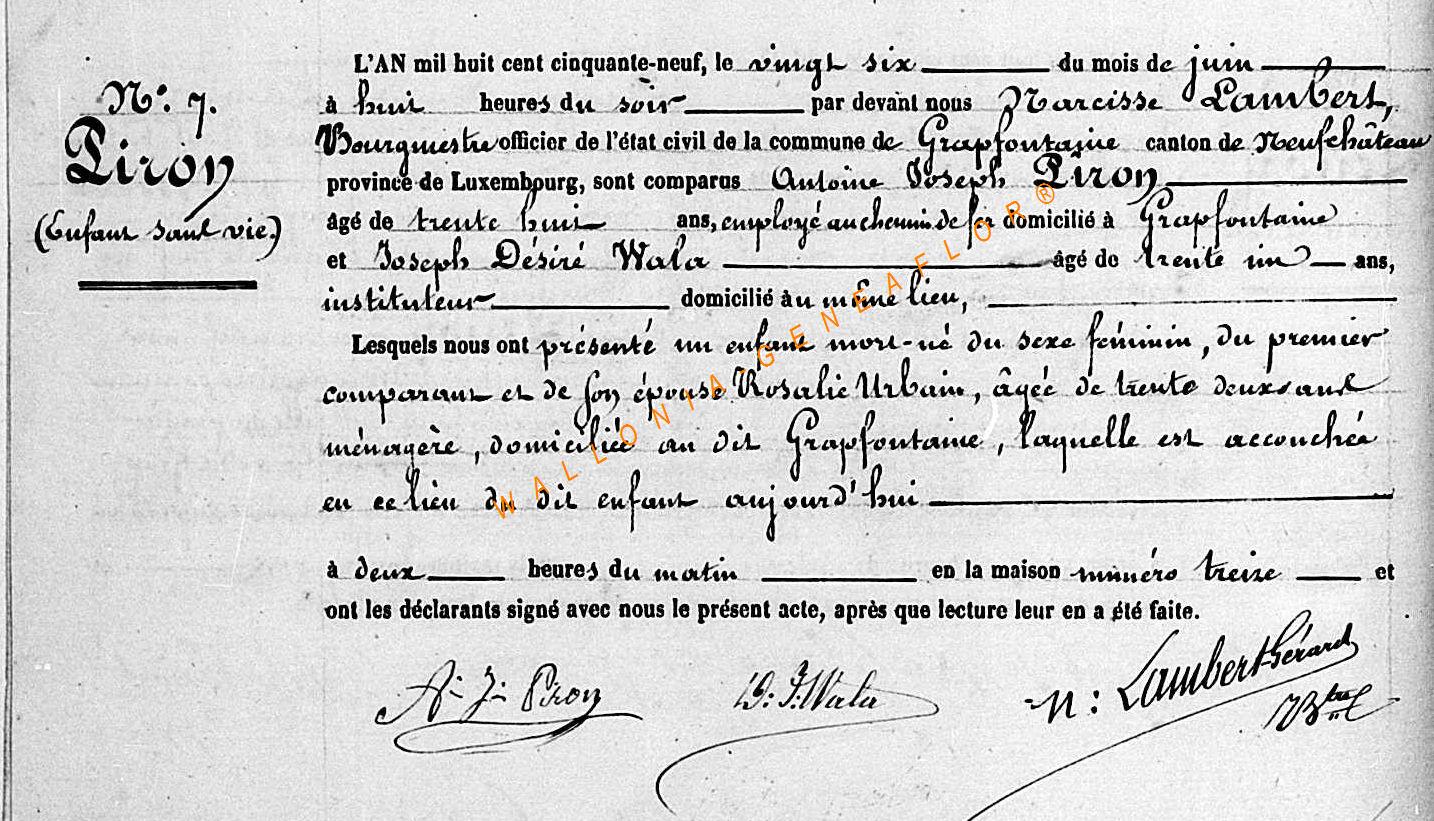 N°. 7.
Piron
(Enfant sans vie.)
L'AN mil huit cent cinquante-neuf, le vingt six du mois de juin
à huit heures du soir par devant nous Narcisse Lambert,
Bourgmestre officier de l'état civil de la commune de Grapfontaine canton de Neufchâteau
province de Luxembourg, sont comparus Antoine Joseph Piron
âgé de trente huit ans, employé au chemin de fer domicilié à Grapfontaine
et Joseph Désiré Wala âgé de trente un ans,
instituteur domicilié au même lieu,
Lesquels nous ont présenté un enfant mort-né du sexe féminin, du premier
comparant et de son épouse Rosalie Urbain, âgée de trente deux ans
ménagère, domiciliée au dit Grapfontaine, laquelle est accouchée
en ce lieu du dit enfant aujourd'hui
à deux heures du matin en la maison numéro treize et
ont les déclarants signé avec nous le présent acte, après que lecture leur en a été faite.
A. J. Piron D. J. Wala N: Lambert Gérard
Btre
WALLONIA-GENEAFLOR®